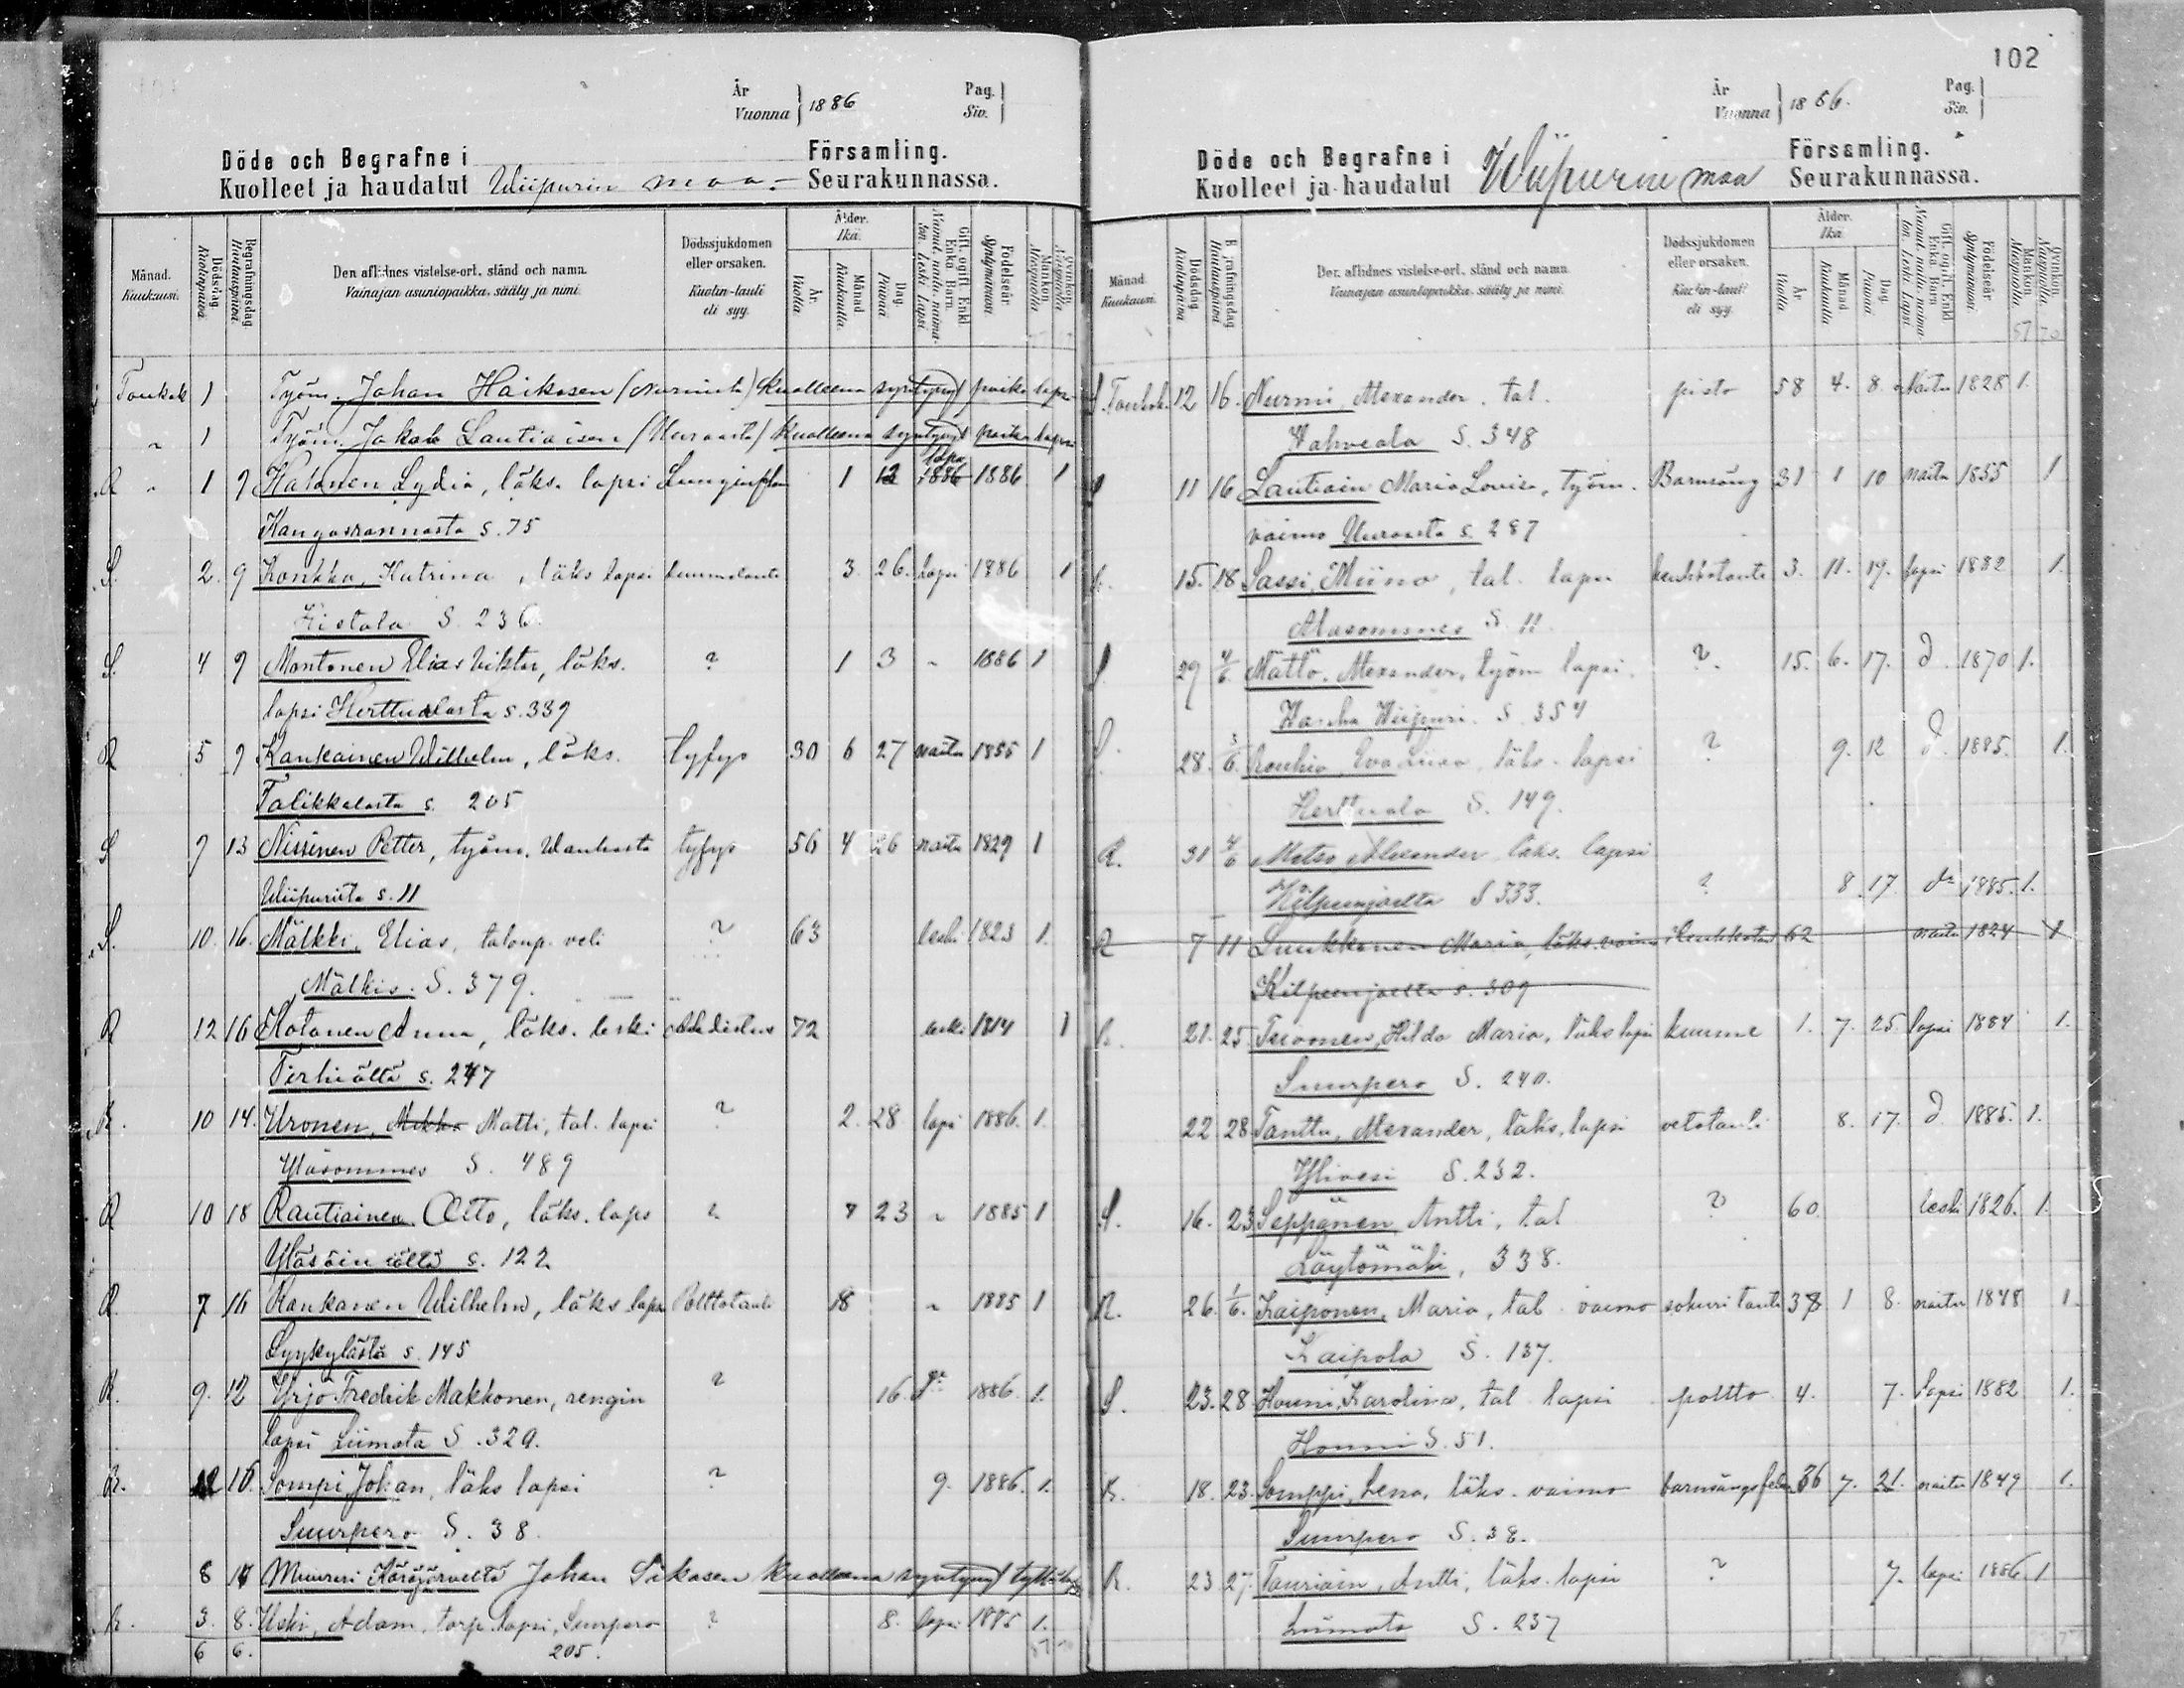 År
Vuonna } 1886
Pag.
Siv. }
Döde och Begrafne i Församling.
Kuolleet ja haudatut Wiipurin maa- Seurakunnassa.
Månad.
Kuukausi.
Dödsdag.
Kuolinpäivä.
Begrafningsdag.
Hautauspäivä.
Den aflidnes vistelse-ort, stånd och namn.
Vainajan asuntopaikka, sääty ja nimi.
Dödssjukdomen
eller orsaken.
Kuolin-tauti
eli syy.
Ålder.
Ikä.
År.
Vuotta
Månad
Kuukautta.
Dag.
Päivää.
Gift, ogift, Enkl.
Enka, Barn.
Nainut, naitu, naima-
ton, Leski, Lapsi.
Födelseår.
Syntymävuosi.
Mankön.
Miespuolia.
Qvinkön.
Naispuolia.
Toukok 1 Työm. Johan Haikosen (Nurmista) kuolleena syntynyt poika lapsi
" 1 Työm. Jakob Lautiaisen (Uuraasta) kuolleena syntynyt poika lapsi
R " 1 9 Hatonen Lydia, läks. lapsi Lunginfl 1 12 lapsi 1886 1886 1
Kangasrannasta s. 75
S. 2. 9 Konkka, Katrina, läks lapsi kuumetauti 3. 26. Lapsi 1886 1
Hietala S. 236.
S. 4 9 Montonen Elias Viktor, läks. ? 1 3 " 1886 1
lapsi Herttualasta s. 339
R 5 9 Kankainen Wilhelm, läks. tyfys 30 6 27 naitu 1855 1
Talikkalasta s. 205
S 9 13 Nissinen Petter, työm. Wanhasta tyfys 56 4 26 naitu 1829 1
Wiipurista s. 11
S. 10. 16. Mälkki, Elias, taloup. veli ? 63 leski 1823 1.
Mälkis. S. 379.
R 12 16 Hatonen Anna, läks. leski 72 leski 1814 1
Terhiältä s. 247
R. 10 14. Uronen, Mikko Matti, tal. lapsi ? 2. 28 lapsi 1886. 1.
Yläsommes S. 489
R 10 18 Rautiainen Otto, läks. laps ? 7 23 " 1885 1
Yläsäiniältä s. 122
R. 7 16 Kankanen Wilhelm, läks lapsi Polttotauti 18 " 1885 1
Lyykylästä s. 145
R. 9. 12 Yrjö Fredrik Makkonen, rengin ? 16. do 1886. 1.
lapsi Liimata S. 329.
R. 12 16. Sompi, Johan, läks lapsi ? 9. 1886. 1.
Suurpero S. 38.
8 14 Muurari Kärsjärveltä Johan Sikasen kuolleena syntynyt tyttö
R. 3. 8. Uski, Adam, torp. lapsi, Suurpero ? 8. lapsi 1885 1.
6 6. 205.
102
År
Vuonna } 1886.
Pag.
Siv. }
Döde och Begrafne i Församling.
Kuolleet ja haudatut Wiipurin maa Seurakunnassa.
Månad.
Kuukausi.
Dödsdag
Kuolinpäivä
Begrafningsdag
Hautauspäivä
Den aflidnes vistelse-ort, stånd och namn.
Vainajan asuntopaikka, sääty ja nimi.
Dödssjukdomen
eller orsaken.
Kuolin-tauti
eli syy.
Ålder.
Ikä.
År
Vuotta
Månad
Kuukautta
Dag.
Päivää.
Gift, ogift, Enkl.
Enka, Barn
Nainut, naitu, naima-
ton, Leski, Lapsi.
Födelseår.
Syntymävuosi.
Mankön.
Miespuolia.
Qvinkön.
Naispuolia.
S. Toukok. 12 16. Nurmi, Alexander. tal. pisto 58 4. 8. Naitu 1828 1.
Kahveala S. 348
S 11 16 Lautiain Maria Lovisa, työm. Barnsäng 31 1 10 naitu 1855 1
vaimo Uuraasta s. 287
R. 15. 18 Sassi, Miina, tal. lapsi keuhkotauti 3. 11. 19. lapsi 1882 1.
Alasommes S. 11.
S 29 4/6. Mättö, Alexander, työm lapsi. ? 15. 6. 17. d. 1870 1.
Wanha Wiipuri. S. 354
S. 28. 3/6. Rouhia, Eva Liisa, läks. lapsi ? 9. 12 d. 1885. 1.
Herttuala S. 149.
R. 31 4/6 Metso Alexander läks. lapsi
Kilpeenjoelta S 333. ? 8. 17. do 1885. 1.
R 7 11 Luukkanen Maria, läks. vaimo keuhkotaut 62 naitu 1824 1
Kilpeenjoelta s. 309
R. 21. 25. Teivonen, Hilda Maria, läks lapsi kuume 1. 7. 25 lapsi 1884 1.
Suurpero S. 240.
22 28 Tanttu, Alexander, läks. lapsi vetotauti 8. 17. d 1885. 1.
Ylivesi S. 232.
S. 16. 23 Seppänen Antti, tal ? 60 leski 1826. 1.
Löytömäki, 338.
R. 26. 1/6. Kaiponen, Maria, tal. vaimo sokuri tauti 38 1 8. naitu 1848 1
Kaipola S. 137.
S. 23. 28 Honni, Karolina, tal lapsi poltto 4. 7. lapsi 1882 1.
Honni S. 51.
R. 18. 23. Somppi, Lena, läks. vaimo barnsängsfeber 36 7. 21. naitu 1849 1.
Suurpero S. 38.
R. 23 27. Tauriain, Antti, läks. lapsi ? 7. lapsi 1886 1
Liimata S. 237